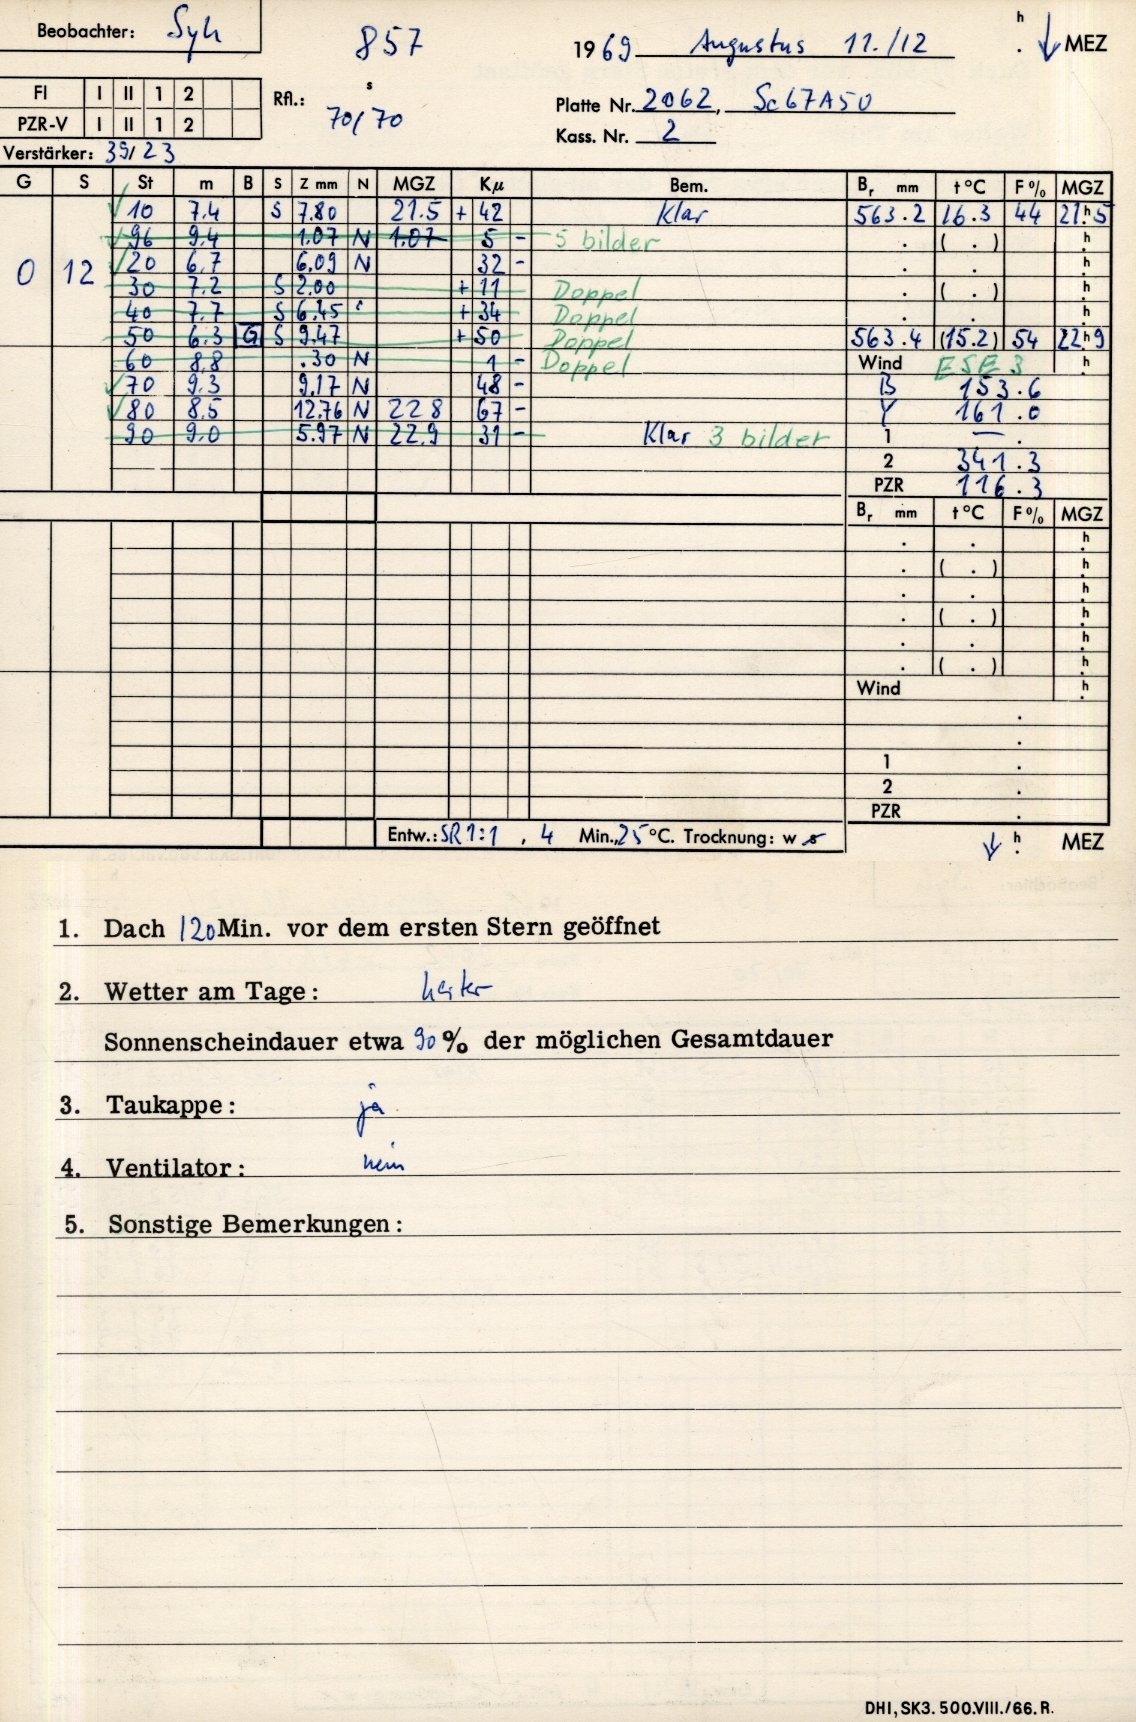 Beobachter: Syh 857 1969 Augustus 11./12 h . ↓ MEZ
FI I II 1 2 Rfl.: s 70/70 Platte Nr. 2062, Sc67A50
PZR-V I II 1 2 Kass. Nr. 2
Verstärker: 39/23
G S St m B S Z mm N MGZ Kμ Bem. Br mm t °C F % MGZ
✓ 10 7.4 S 7.80 21.5 + 42 Klar 563.2 16.3 44 21h5
✓ 96 9.4 1.07 N 1.07 5 - 5 bilder . ( . ) h
0 12 ✓ 20 6.7 6.09 N 32 - . . h
30 7.2 S 2.00 + 11 Doppel . ( . ) h
40 7.7 S 6.45 + 34 Doppel . . h
50 6.3 G S 9.47 + 50 Doppel 563.4 (15.2) 54 22h9
60 8.8 .30 N 1 - Doppel Wind ESE 3 h
✓ 70 9.3 9.17 N 48 - B 153.6
✓ 80 8.5 12.76 N 22 8 67 - Y 161.0
90 9.0 5.97 N 22.9 31 - Klar 3 bilder 1 — .
2 341.3
PZR 116.3
Br mm t °C F % MGZ
. . h
. ( . ) h
. . h
. ( . ) h
. . h
. ( . ) h
Wind h
.
.
1 .
2 .
PZR .
Entw.: SR 1:1 , 4 Min., 25 °C. Trocknung: w s ↓ h . MEZ
1. Dach 120 Min. vor dem ersten Stern geöffnet
2. Wetter am Tage: heiter
Sonnenscheindauer etwa 90 % der möglichen Gesamtdauer
3. Taukappe: ja
4. Ventilator: nein
5. Sonstige Bemerkungen:
DHI, SK3. 500.VIII./66. R.